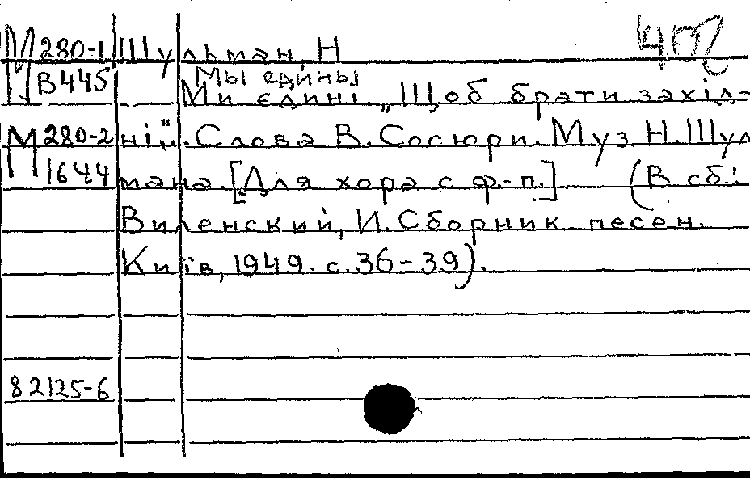 М 280-1 Шульман, Н
В445 Мы едины
Ми єдині „Щоб брати західн-
М 280-2 ні". Слова В. Сосюри. Муз Н. Шул
1644 мана. [Для хора с ф-п.] (В сб:
Виленский, И. Сборник песен.
Київ, 1949. с. 36-39).
82125-6